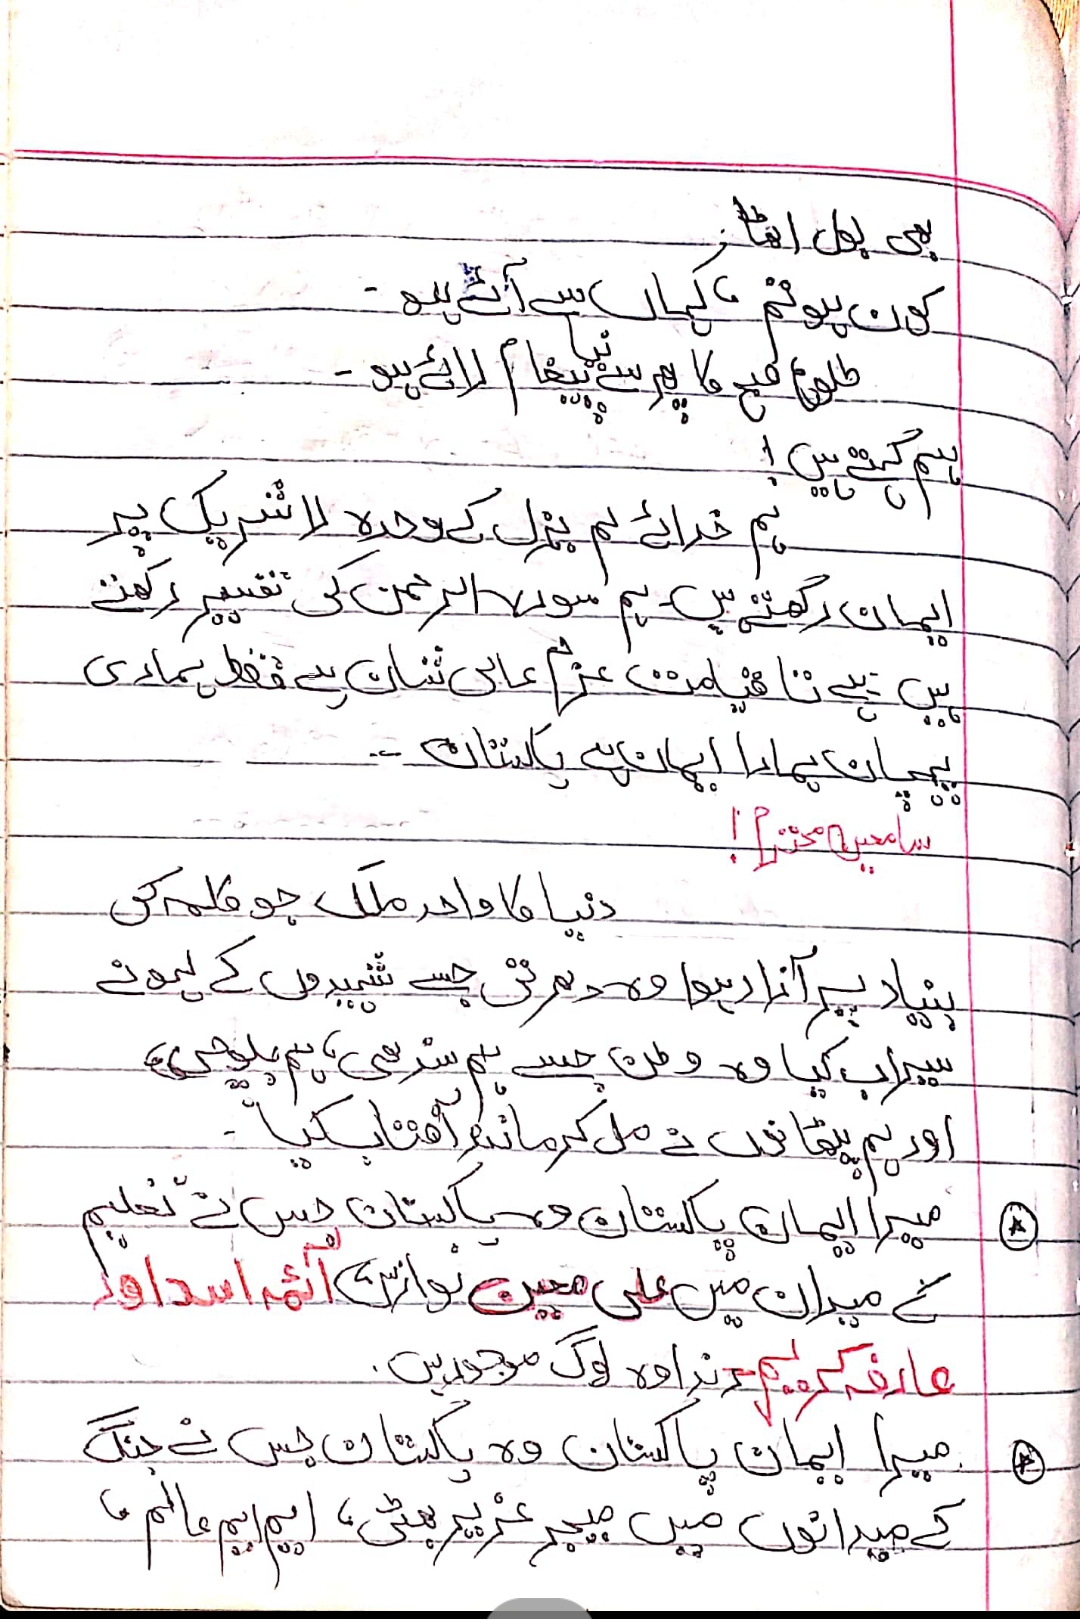 بھی بول اٹھا:
کون ہو تم، کہاں سے آئے ہو۔
طلوع صبح کا پھر سے نیا پیغام لائے ہو۔
ہم کہتے ہیں!
ہم خدائے لم یزل کے وحدہ لا شریک پر
ایمان رکھتے ہیں۔ ہم سورۃ الرحمن کی تفسیر رکھتے
ہیں۔ ہے تا قیامت عزم عالی شان ہے فقط ہماری
پہچان ہمارا ایمان ہے پاکستان ۔۔
سامعین محترم!
دنیا کا واحد ملک جو کلمہ کی
بنیاد پر آزاد ہوا وہ دھرتی جسے شہیدوں کے لہو نے
سیراب کیا وہ وطن جسے ہم سندھی، ہم بلوچی،
اور ہم پٹھانوں نے مل کر مانند آفتاب کیا۔
میرا ایمان پاکستان وہ پاکستان جس نے تعلیم
کے میدان میں علی معین نوازش، آئمہ اسد اور
عارفہ کریم رنداوہ لوگ موجود ہیں.
میرا ایمان پاکستان وہ پاکستان جس نے جنگ
کے میدانوں میں میجر عزیز بھٹی، ایم ایم عالم،